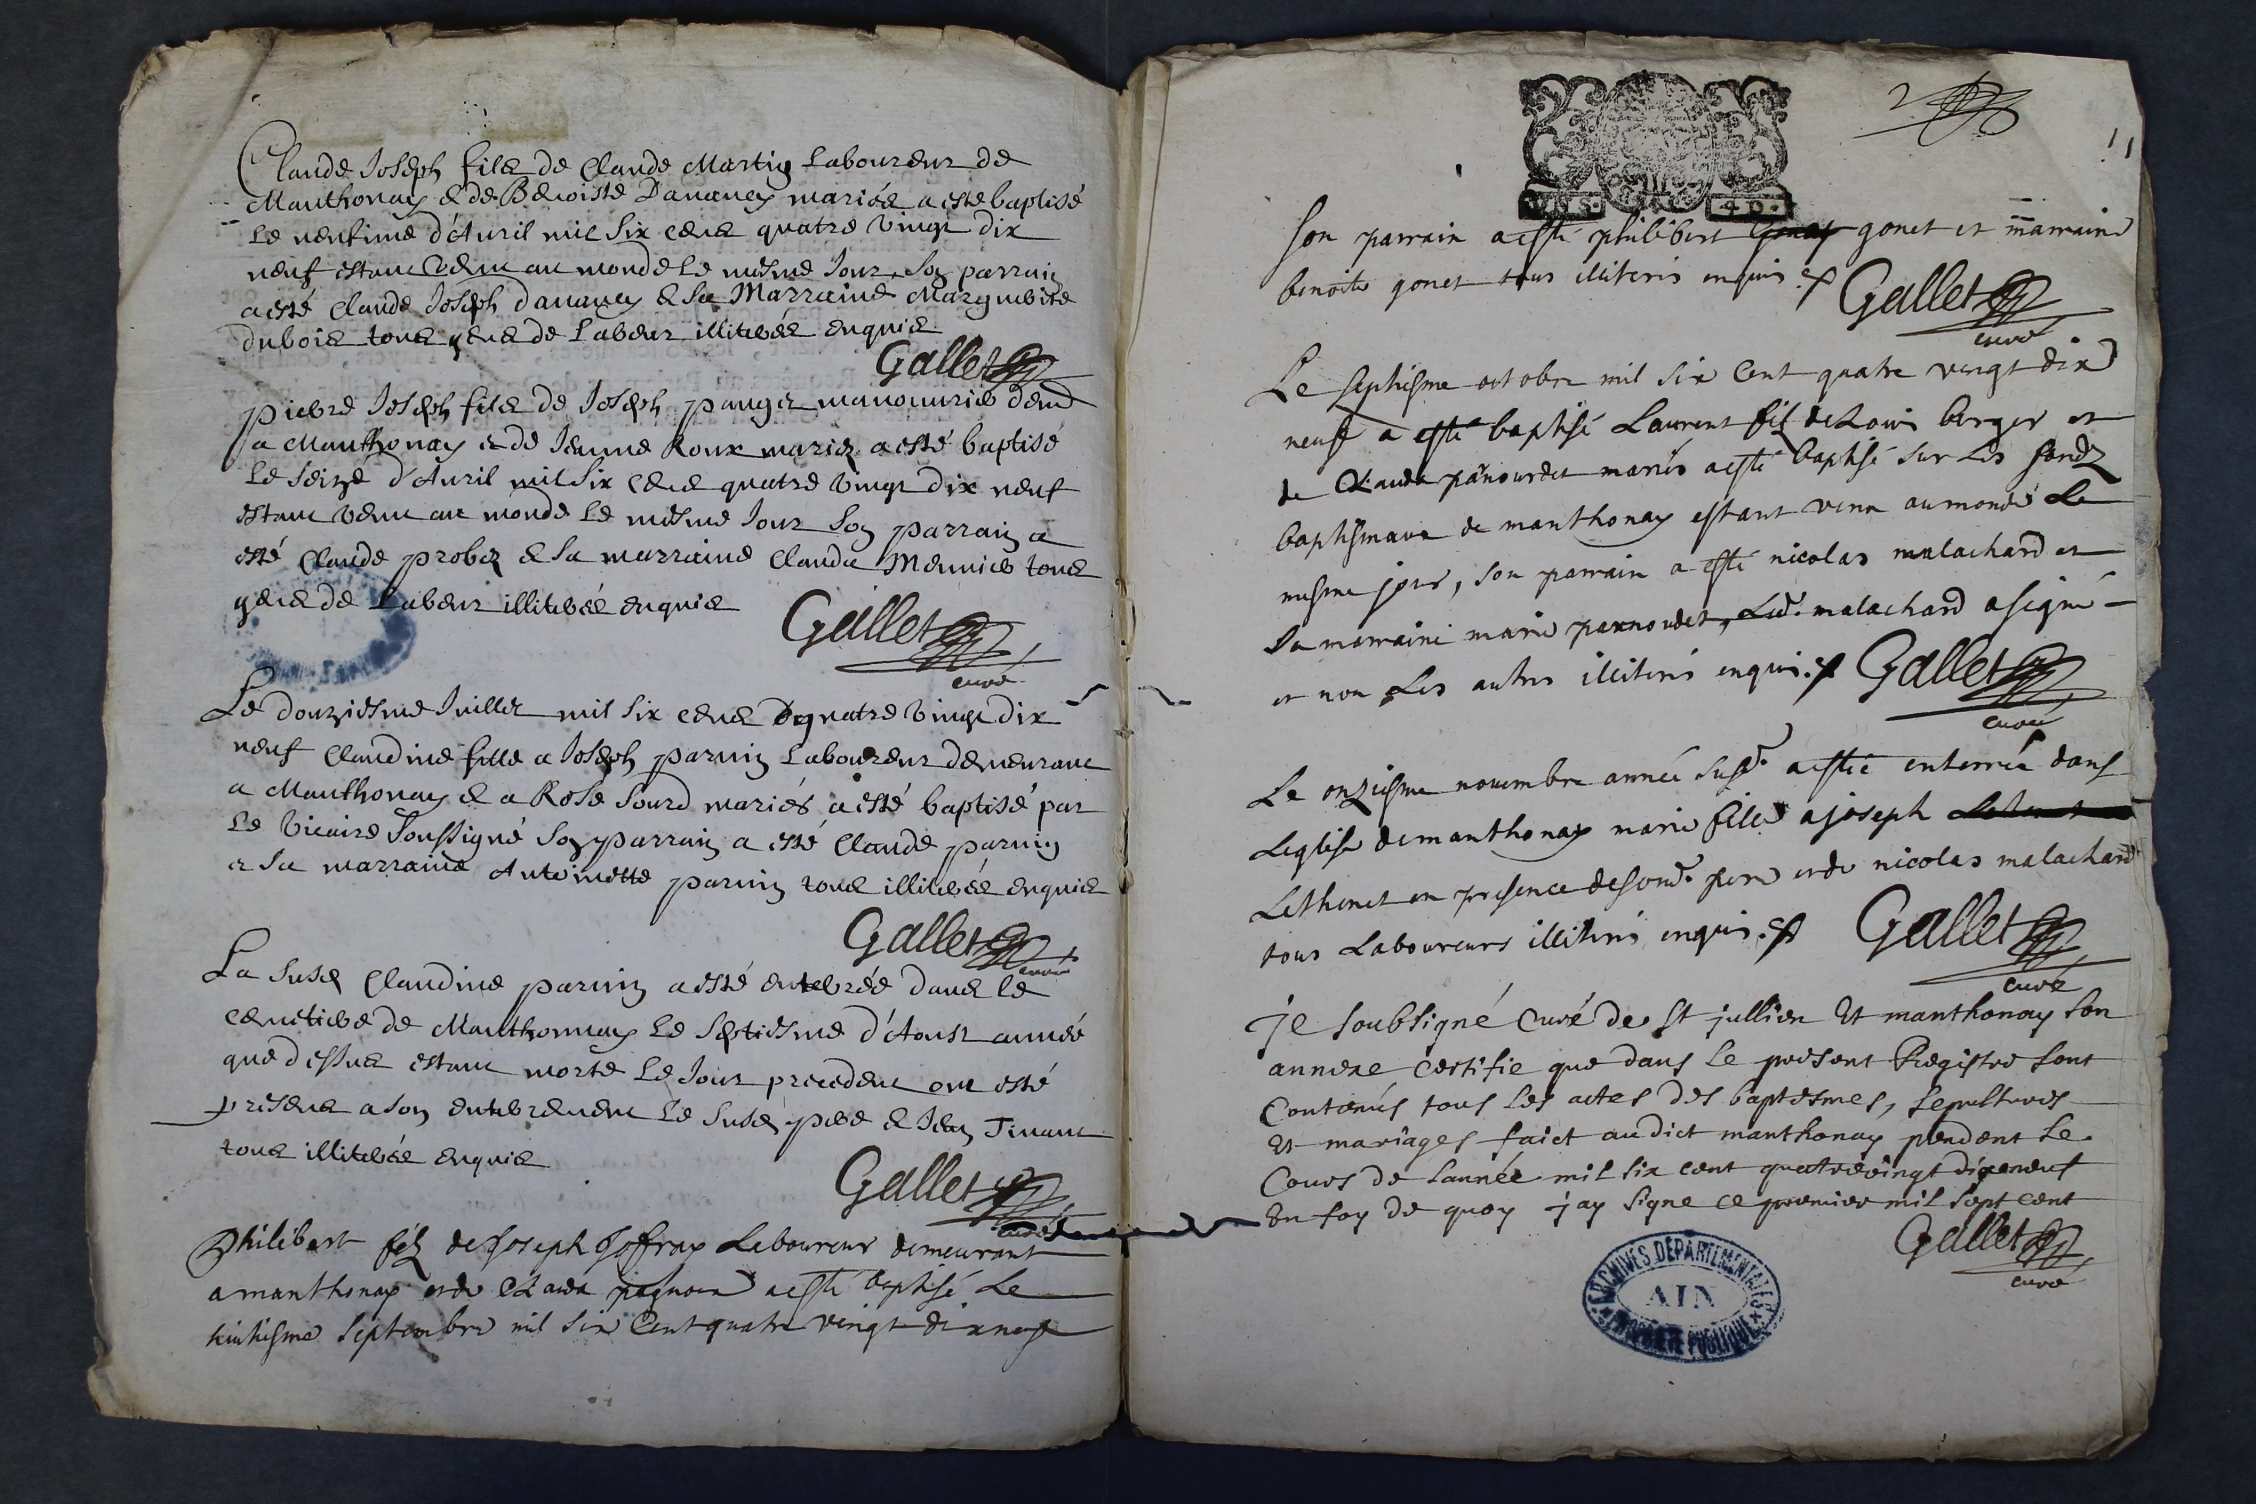 Claude Joseph fils de Claude Martin Laboureur de
Manthonay & de Benoiste Dananey mariés a esté baptisé
Le neufime d'Auril mil six cens quatre vingt dix
neuf estant venu au monde le mesme Jour, son parrain
a esté Claude Joseph dananey & sa Marraine Marguerite
dubois tous gens de Labeur illiterés enquis
Gallet
Pierre Joseph fils de Joseph panget manouurier dem^t
a Manthonay & de Jeanne Roux mariez a esté baptisé
Le seize d'Auril mil six cens quatre vingt dix neuf
estant venu au monde le mesme Jour son parrain a
esté Claude probez & sa marraine Clauda Meunier tous
gens de Labeur illiterés enquis
Gallet
curé
Le douziesme Juillet mil six cens quatre vingt dix
neuf Claudine fille a Joseph parnin Laboureur demeurant
a Manthonay & a Rose Sourd mariés a esté baptisé par
Le vicaire soussigné son parrain a esté Claude parnin
& sa marraine Antoinette parnin tous illiterés enquis
Gallet
curé
La susd Claudine parnin a esté enterrée dans le
cemetiere de Manthonnay le septiesme d'Aoust année
que dessus estant morte le Jour precedent ont esté
presens a son enterrement le susd pere & Jean Tinant
tous illiterés enquis
Gallet
curé
Philibert filz de Joseph Joffray Laboureur demeurant
a manthonay et de Clauda pagnoux a esté baptisé Le
huitiesme septembre mil six Cent quatre vingt dix neuf
2
11
UN S. 4 D.
son parrain a esté philibert gonet et marraine
benoite gonet tous illiterés enquis
Gallet
curé
Le septiesme octobre mil six Cent quatre vingt dix
neuf a esté baptisé Laurent filz de Louis berger et
de Clauda pánourdet mariés a esté baptisé sur Les fondz
baptismaux de manthonay estant venu au monde Le
mesme jour, son parrain a esté nicolas malachard et
sa marraine marie pannoudet, Led. malachard a signé
et non Les autres illiterés enquis
Gallet
curé
Le onziesme nouembre année susd. a esté enterrée dans
Leglise de manthonay marie fille a joseph
Lethenet en presence de sond. pere et de nicolas malachard
tous Laboureurs illiterés enquis
Gallet
curé
Je soubsigné Curé de St jullien Et manthonay son
annexe Certifie que dans le present Registre sont
Contenus tous les actes des baptesmes, sepultures
Et mariages faict audict manthonay pendent le
Cours de lannée mil six cent quatre vingt dixeneuf
En foy de quoy jay signe ce premier mil sept cent
Gallet
curé
ARCHIVES DÉPARTEMENTALES
AIN
PROPRIÉTÉ PUBLIQUE